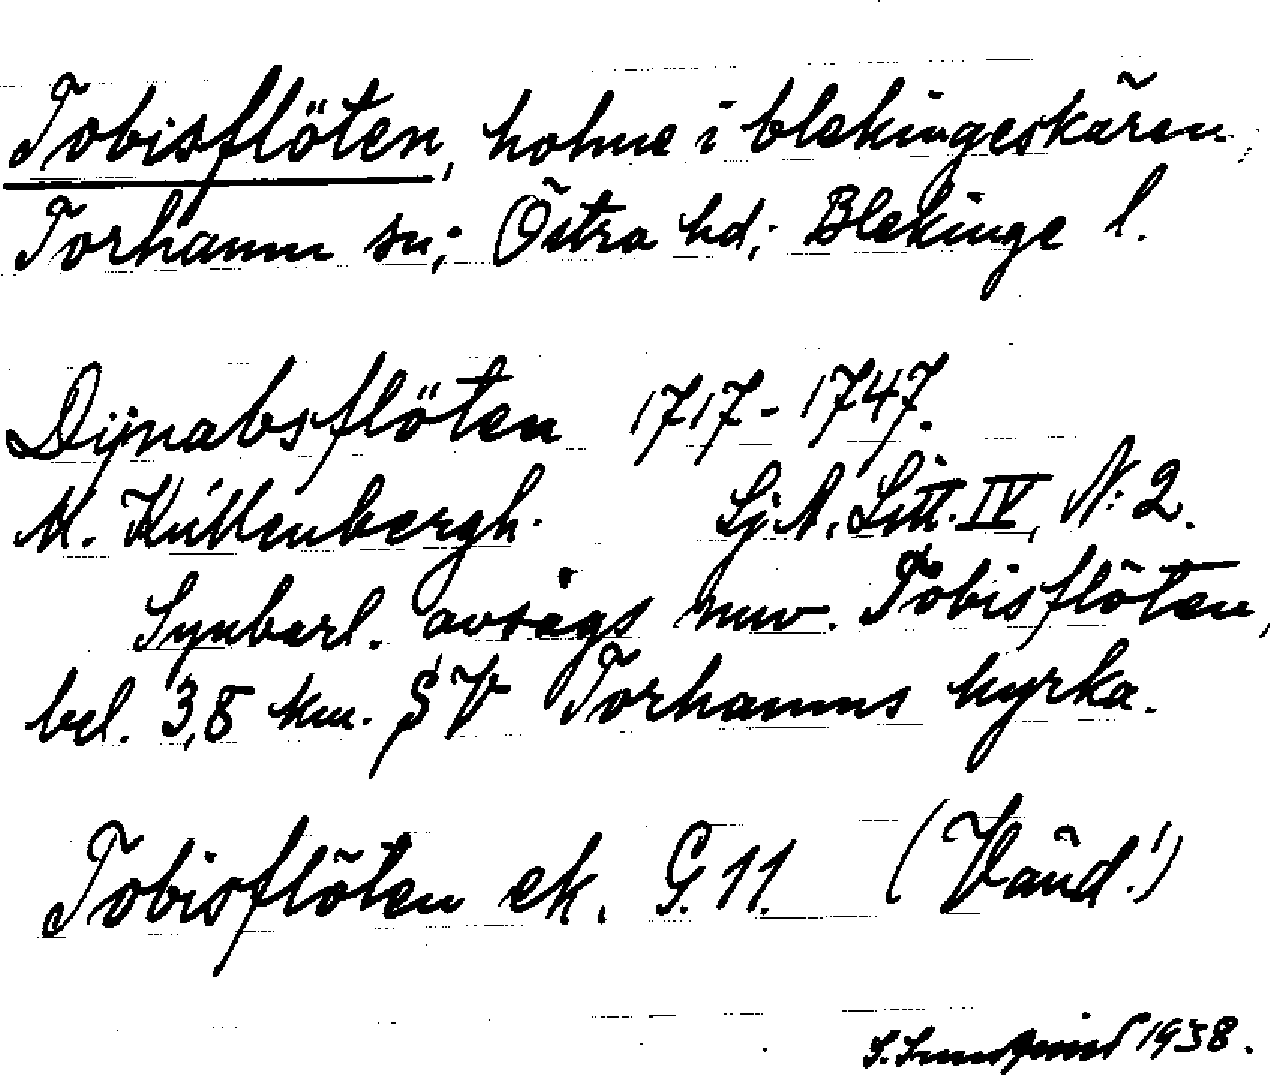 Tobisflöten, holme i blekingeskären;
Torhamn sn; Östra hd; Blekinge l.
Dÿnabsflöten 1717-1747.
M. Küllenbergh. Sj.A. Litt. IV, N: 2.
Synbarl. avsågs nuv. Tobisflöten,
bel. 3,8 km. SV Torhamns kyrka.
Tobisflöten ek. G. 11. (Vänd!)
1938.